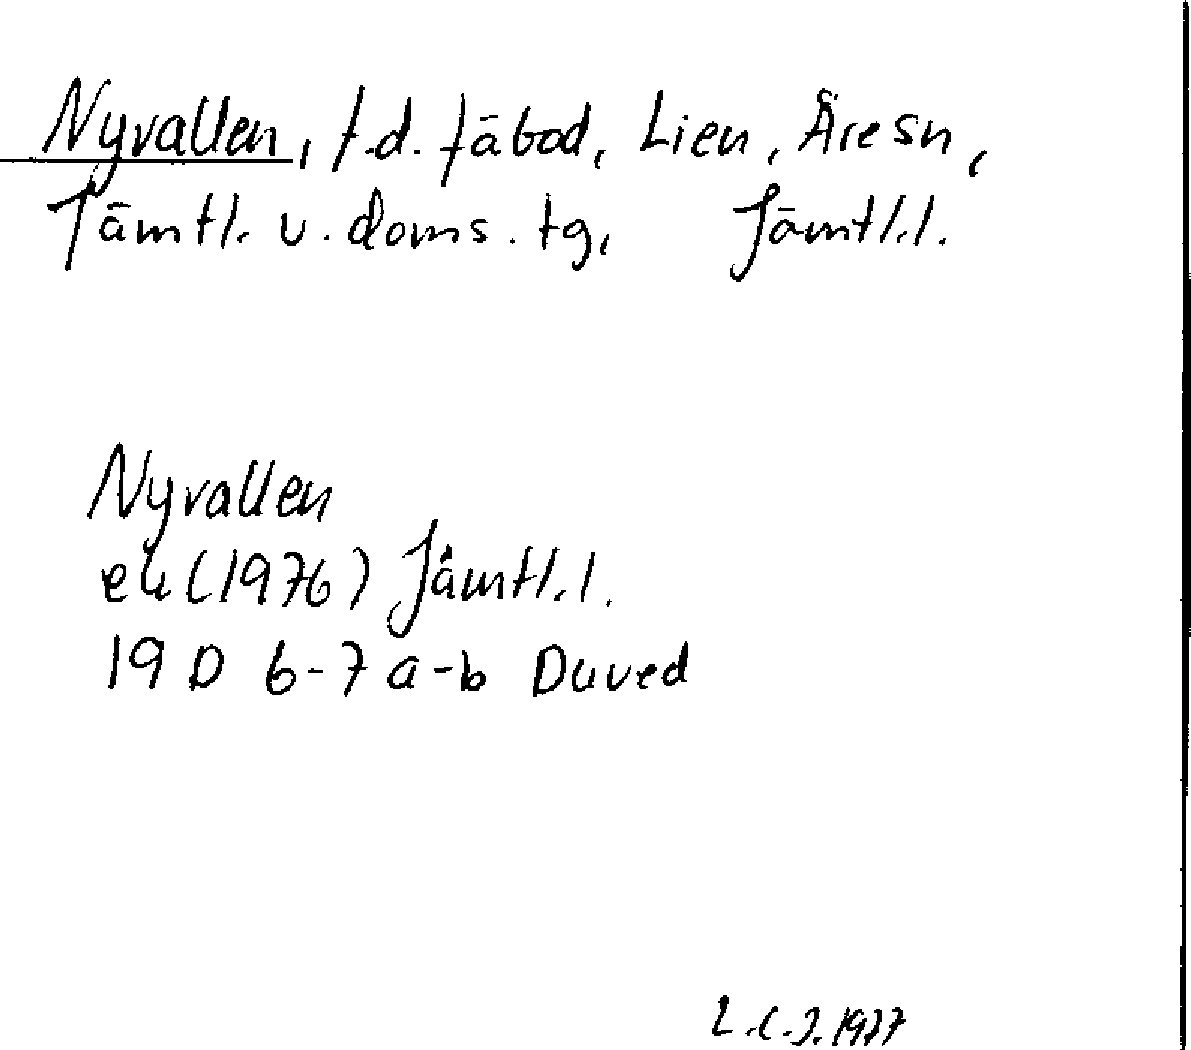 Nyvallen, f.d. fäbod, Lien, Åre sn,
Jämtl. v. doms. tg, Jämtl.l.
Nyvallen
ek (1976) Jämtl.l.
19 D 6-7 a-b Duved
L.C.J. 1977